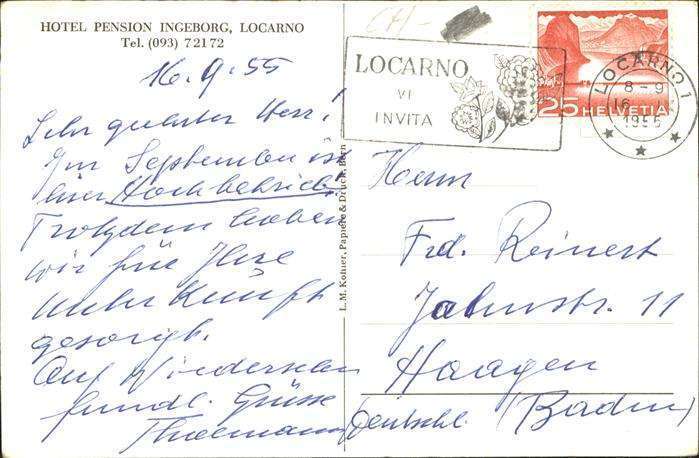 HOTEL PENSION INGEBORG, LOCARNO
Tel. (093) 7 21 72
16.9.55
Sehr geehrter Herr!
Im September ist
hier Hochbetrieb!
Trotzdem haben
wir für Ihre
Unterkunft
gesorgt.
Auf Wiedersehen
freundl. Grüsse
Thalmann
L. M. Kohner, Papiere & Druck, Bern
CH-
LOCARNO
VI
INVITA
25 HELVETIA
LOCARNO 1
8-9
16
1955
Herrn
Frd. Reinert
Jahnstr. 11
Haagen
(Baden)
Deutschl.